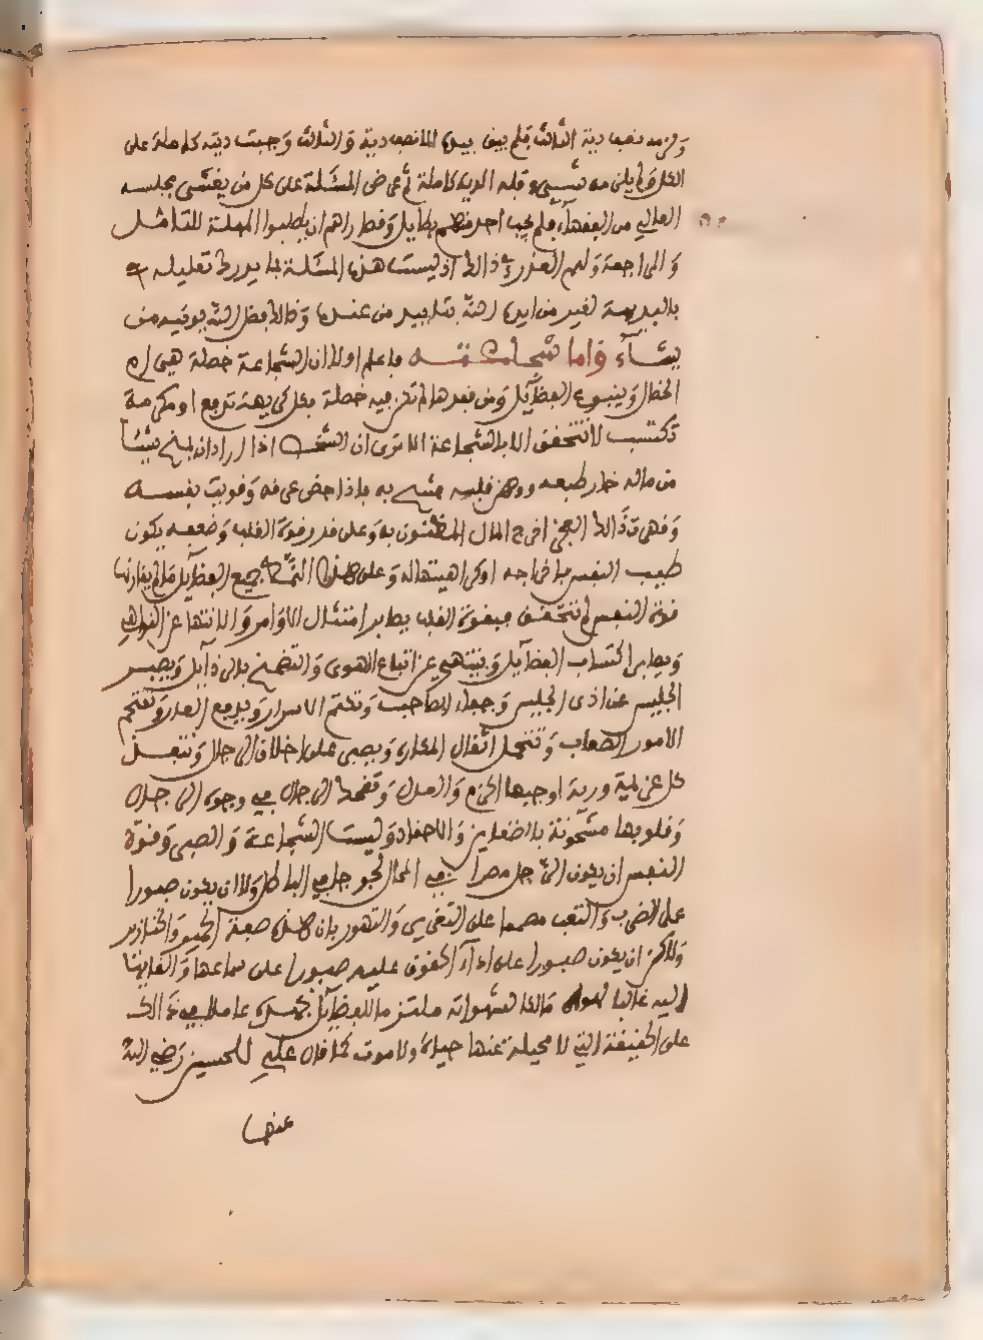 ولزمه نصف دية الثالث فلم يبق بيده الا نصف دية والثالث وجبت ديته كاملة على
الكل ولم يلزمه شيء وقبله الدية كاملة ثم عرض المسئلة على كل من يغشى مجلسه
العالي من الفقهاء فلم يجب احد منهم بطايل وقصاراهم ان يطلبوا المهلة للتامل
والمراجعة ولهم العذر في ذالك اذ ليست هذه المسئلة مما يدرك تعليله
بالبديهة لغير من ايده الله بتاييد من عنده وذالك فضل الله يوتيه من
يشآء واما شجاعته فاعلم اولا ان الشجاعة خصلة هي ام
الخصال وينبوع الفضآيل ومن فقدها لم تكن فيه خصلة فكل كريهة ترفع او مكرمة
تكتسب لا تتحقق الا بالشجاعة الا ترى ان الشخص اذا اراد ان يمنح شيئا
من ماله خار طبعه ووهن قلبه فشح به فاذا حضر عزمه وقويت نفسه
وقهرت ذالك العجز اخرج المال المظنون به وعلى قدر قوة القلب وضعفه يكون
طيب النفس باخراجه او كراهيتها له وعلى هذا النمط جميع الفضآيل ما لم يقارنها
قوة النفس لم تتحقق فبقوة القلب يصابر امتثال الاوامر والانتها عن النواهي
ويصابر اكتساب الفضآيل وينتهي عن اتباع الهوى والتضمخ بالرذآيل ويصبر
الجليس على اذى الجليس وجفاء الصاحب وتكتم الاسرار ويدفع العار وتقتحم
الامور الصعاب وتتحمل اثقال المكاره ويصبر على اخلاق الرجال وتنفذ
كل عزيمة وروية اوجبها الحزم والعدل وتضحك الرجال في وجوه الرجال
وقلوبها مشحونة بالضغاين والاحقاد وليست الشجاعة والصبر وقوة
النفس ان يكون الرجل مصرا في المحال لجوجا في الباطل ولا ان يكون صبورا
على الضرب والتعب مصمما على التغرير والتهور فان هذه صفة الحمير والخنازير
ولاكن ان يكون صبورا على اداء الحقوق عليه صبورا على سماعها والقايها
اليه غالبا لهواه مالكا لشهواته ملتزما للفضآيل بجهده عاملا في ذالك
على الحقيقة التي لا يحيله عنها حياة ولا موت كما قال علي للحسين رضي الله
عنهما